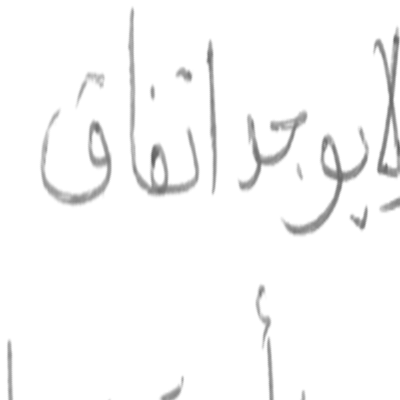 لا يوجد اتفاق